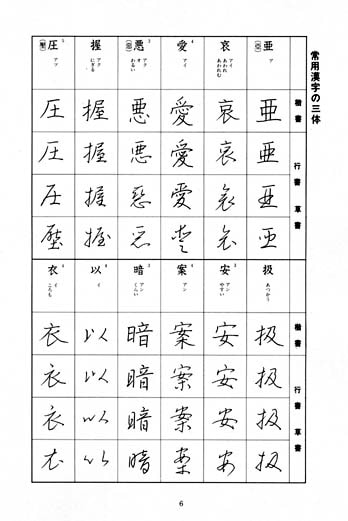 常用漢字の三体
楷書 行書 草書
亜
(亞)
ア
亜
亜
亜
亜
哀
アイ
あわれ
あわれむ
哀
哀
哀
哀
愛
アイ
愛
愛
愛
愛
悪
(惡)
アク
オ
わるい
悪
悪
悪
悪
握
アク
にぎる
握
握
握
握
圧
(壓)
アツ
圧
圧
圧
壓
楷書 行書 草書
扱
あつかう
扱
扱
扱
扱
安
アン
やすい
安
安
安
安
案
アン
案
案
案
案
暗
アン
くらい
暗
暗
暗
暗
以
イ
以
以
以
以
衣
イ
ころも
衣
衣
衣
衣
6